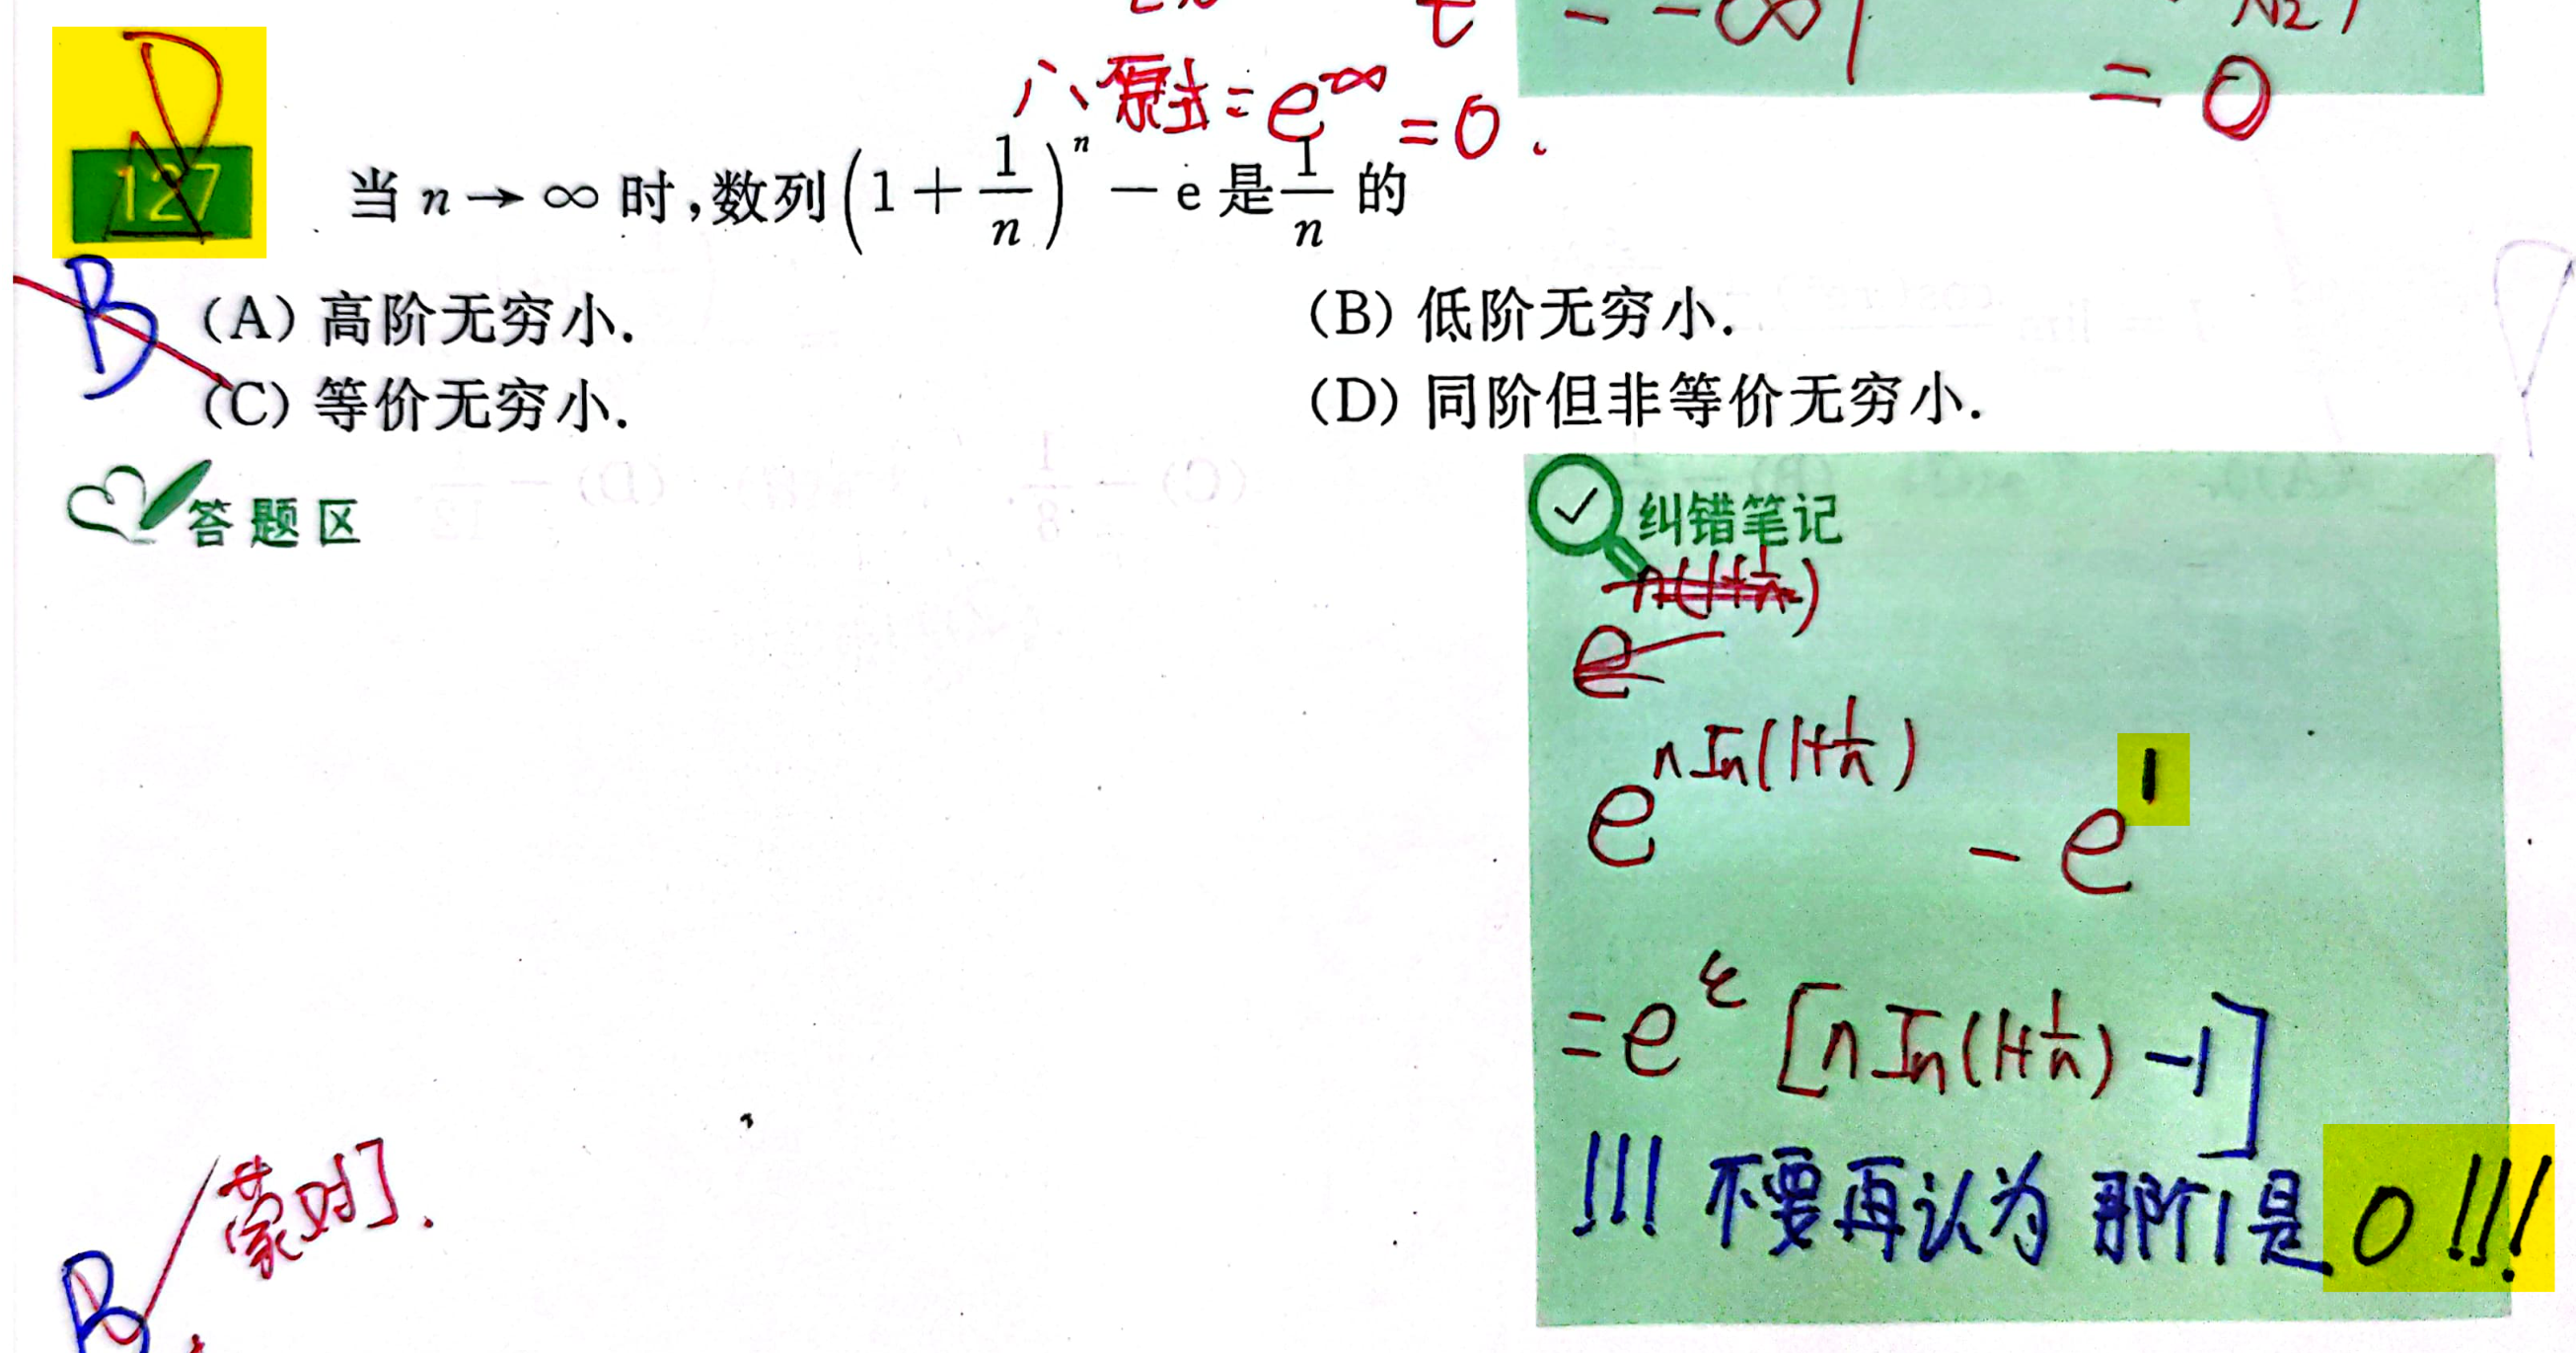 = -∞
= 0
∴ 原式 = e^{-∞} = 0.
D
127 当 n → ∞ 时,数列 (1 + 1/n)^n − e 是 1/n 的
B
(A) 高阶无穷小. (B) 低阶无穷小.
(C) 等价无穷小. (D) 同阶但非等价无穷小.
答题区
纠错笔记
n(1+1/n)
e
e^{n ln(1+1/n)} - e^1
= e^ξ [n ln(1+1/n) -1]
!!! 不要再认为那个1是 0 !!!
蒙对
B